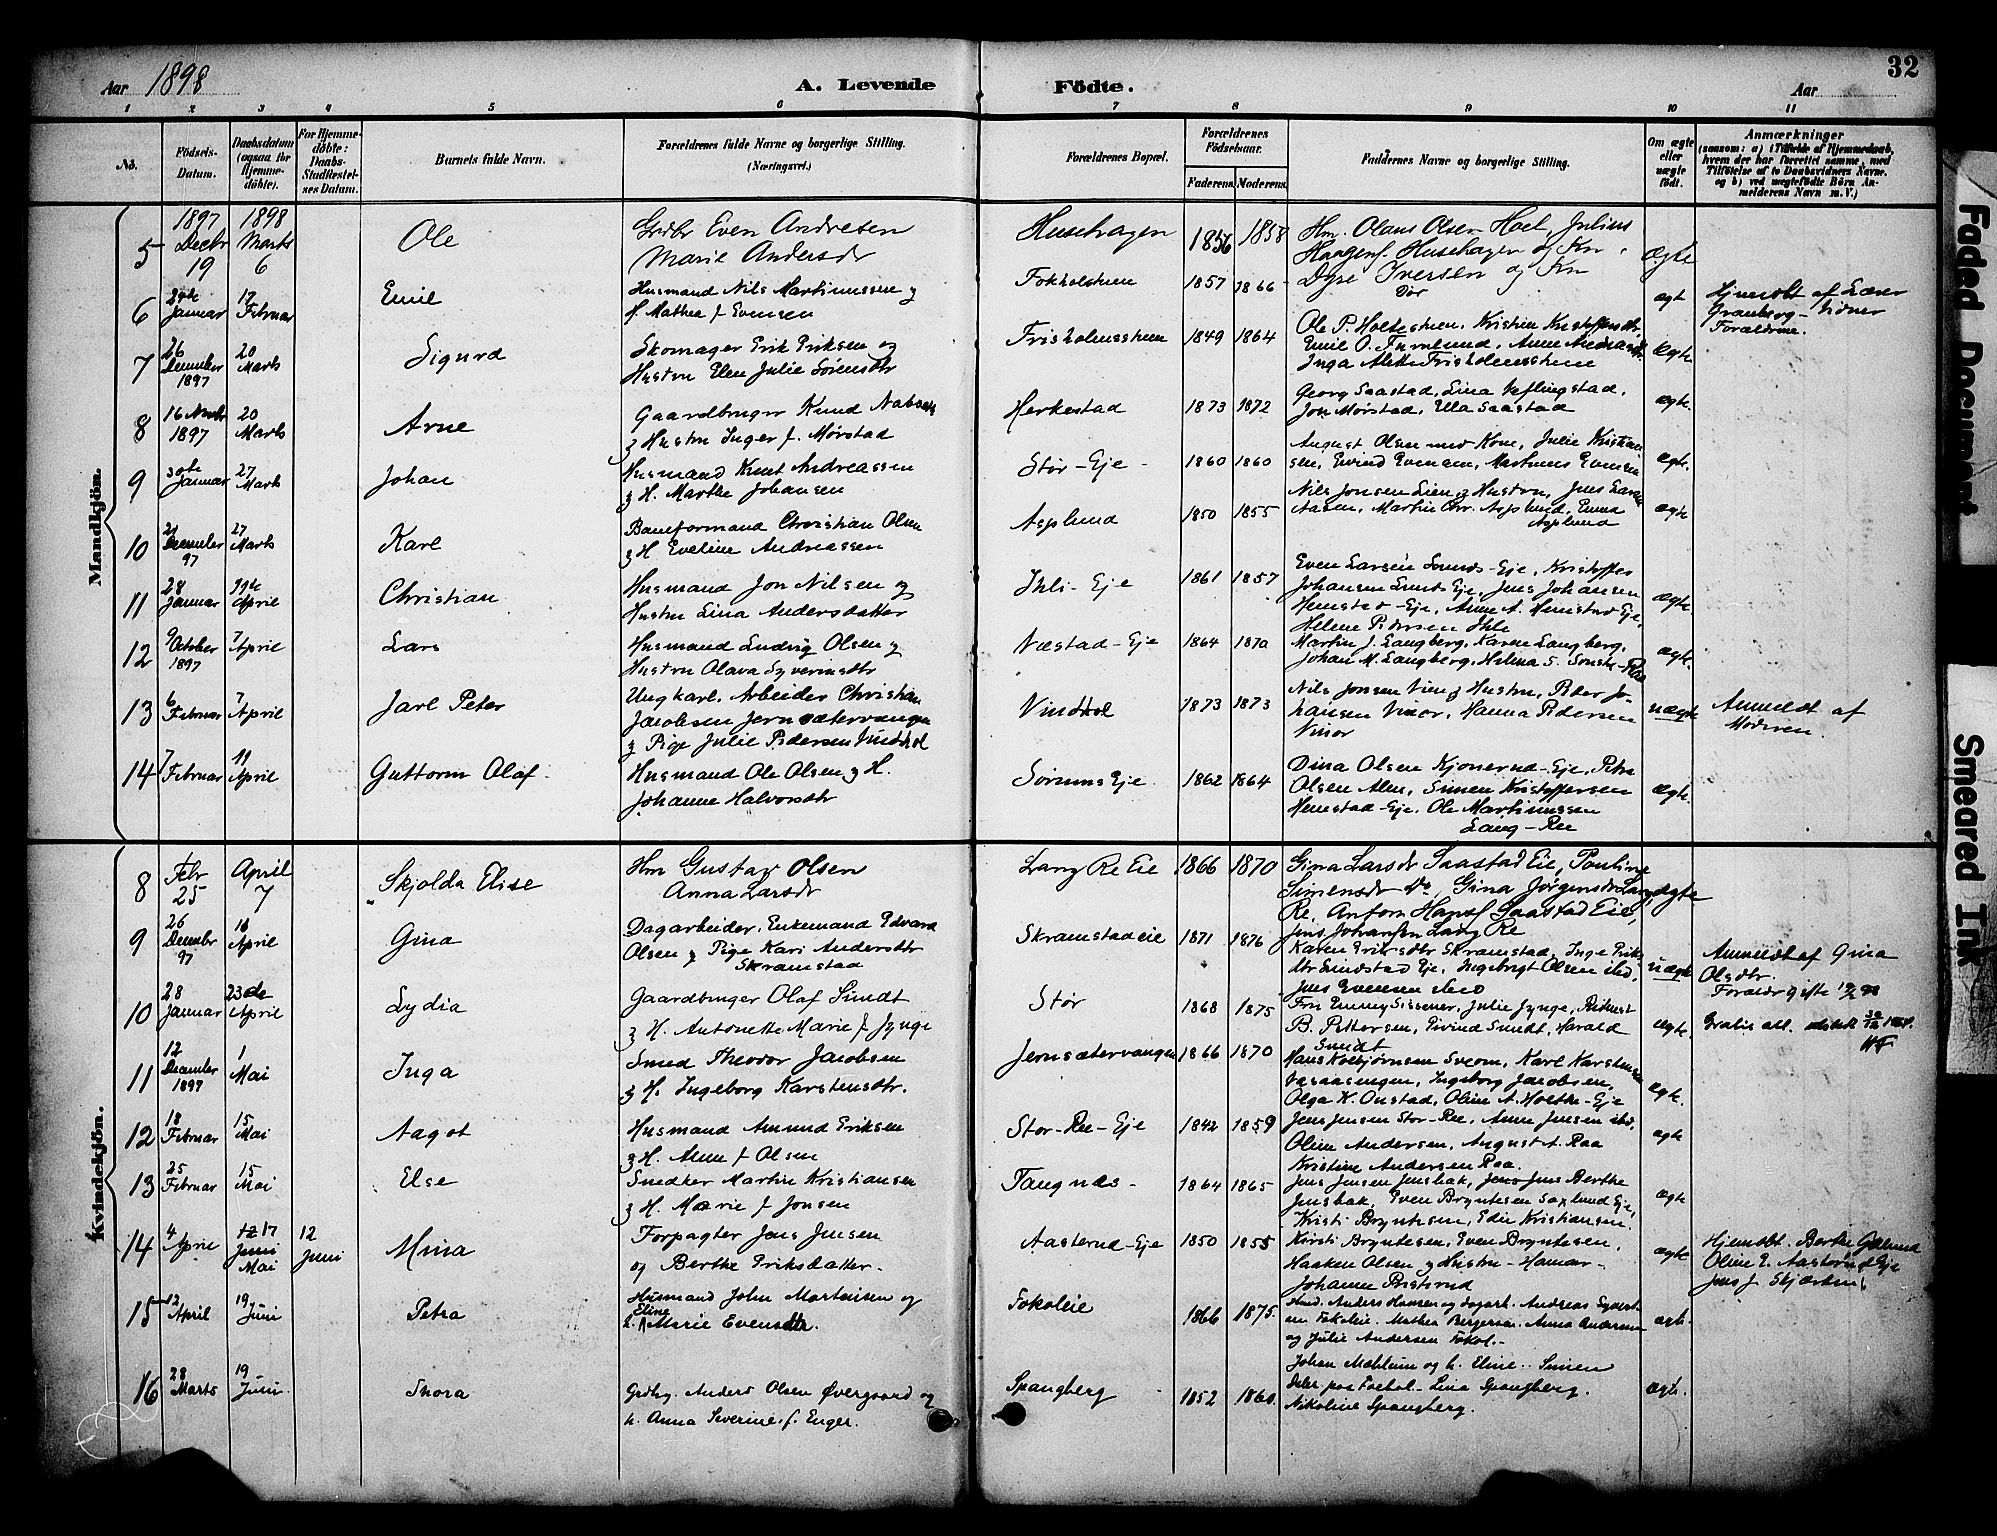 Aar 1898
A. Levende
Födte.
Aar
32
1 2 3 4 5 6 7 8 9 10 11
No.
Födsels-
Datum.
Daabsdatum
(ogsaa for
Hjemme-
döbte).
For Hjemme-
döbte:
Daabs-
Stadfæstel-
ses Datum.
Barnets fulde Navn.
Forældrenes fulde Navne og borgerlige Stilling.
(Næringsvei.)
Forældrenes Bopæl.
Forældrenes
Födselsaar.
Faderens. Moderens.
Faddernes Navne og borgerlige Stilling.
Om ægte
eller
uægte
födt.
Anmærkninger
(saasom: a) i Tilfælde af Hjemmedaab,
hvem der har forrettet samme, med
Tilföielse af to Daabsvidners Navne,
og b) ved uægtefödte Börn An-
melderens Navn m. V.)
Mandkjön.
5
1897
Decbr
19
1898
Marts
6
Ole
Grdbr Even Andresen
Marie Andersdr
Husehagen
1856 1858
Hm. Olaus Olsen Hoel, Julius
Husehagen og Kn
Dyre Iversen og Kn
ægte
6
Januar
17
Februar
Emil
Husmand Nils Martinussen og
f. Mathea f Evensen
Fokholstuen
1857 1866
ægt
Hjemdbt af Lærer
Granberg - Vidner
Forældrene.
7
26
December
1897
20
Marts
Sigurd
Skomager Erik Eriksen og
Hustru Elen Julie Sörensdtr
Frisholmsstuen
1849 1864
Ole P. Holtestuen, Kristien Kristoffersdtr
Emil O. Furulund, Anne
Inga Alette Frisholmsstuen
ægte
8
16
1897
20
Marts
Arne
Gaardbruger Knud
og Hustru Inger f. Mørstad
Herkestad
1873 1872
Georg Saastad, Lina Keflingstad,
Jon Mørstad, Ella Saastad
ægte.
9
30te
Januar
27
Marts
Johan
Husmand Knut Andreassen
og H. Marthe Johansen
Stør-Eje
1860 1860
August Olsen med Kone, Julie Kristian-
sen, Eivind Evensen, Martinus Evensen
ægte.
10
21
December
97
27
Marts
Karl
Baneformand Christian Olsen
og H Eveline Andreassen
Asplund
1850 1855
Nils Jonsen Lien og Hustru, Jens Larsen
Aasen, Martin Chr. Asplund, Emma
Asplund
ægte
11
28
Januar
April
Christian
Husmand Jon Nilsen og
Hustru Lina Andersdatter
Ihli-Eje
1861 1857
Even Larsen Sunds-Eje, Kristoffer
Johansen Lunds Eje, Jens Johansen
Hemstad-Eje, Anne A. Hemstad Eje,
Helene Pedersen Ihle
ægte
12
9
October
1897
7
April
Lars
Husmand Ludvig Olsen og
Hustru Olava Syverinsdtr
Næstad-Eje
1864 1870
Martin J. Langberg, Karen Langberg,
Johan M. Langberg, Helena S.
ægte.
13
6
Februar
7
April
Jarl Peter
Ungkarl, Arbeider Christian
Jacobsen Jernsætervangen
og Pige Julie Pedersen Vindhol
Vindhol
1873 1873
Nils Jonsen Vien og Hustru, Peder Jo-
hansen Vinor, Hanna Pedersen
Vinor
uægte
Anmeldt af
Moderen.
14
7
Februar
11
April
Guttorm Olaf
Husmand Ole Olsen og H.
Johanne Halvorsdtr
Sørums Eje
1862 1864
Dina Olsen Kjonerud-Eje, Petra
Olsen Alm, Simen Kristoffersen
Hemstad-Eje, Ole Martinussen
Lang-Ree
ægte.
Kvindekjön.
8
Febr
25
April
7
Skjolda Elise
Hm Gustav Olsen
Anna Larsdr
Lang Re Eie
1866 1870
Gina Larsdr Saastad Eie, Pauline
Simensdr Do, Gina Jørgensdr Lang
Re, Anton Hansf Saastad Eie,
Jens Johansen Lang Re
ægte
9
26
Decembr
97
16
April
Gina
Dagarbeider, Enkemand Edvard
Olsen og Pige Kari Andersdtr
Skramstad
Skramstadeie
1871 1876
Karen Eriksdtr Skramstad, Inge Eriks-
dtr Sundstad Eje, Ingebrigt Olsen ibd,
Jens Evensen ibid
uægte
Anmeldt af Gina
Olsdtr.
Forældr gifte
10
28
Januar
23de
April
Lydia
Gaardbruger Olaf Smidt
og H. Antonette Marie f Jynge
Stør
1868 1875
Frn Emmy Sissener, Julie Jynge,
B. Pettersen, Eivind Smidt, Harald
Smidt
ægte.
Gratis att.
11
12
December
1897
1
Mai
Inga
Smed Theodor Jacobsen
og H. Ingeborg Karstensdtr.
Jernsætervangen
1866 1870
Hans Kolbjørnsen Sveom, Karl Karstensen
Ingeborg Jacobsen,
Olga K. Onstad, Oline A. Hoelhe-Eje
ægte.
12
18
Februar
15
Mai
Aagot
Husmand Amund Eriksen
og H. Anne f Olsen
Stor-Ree-Eje
1842 1859
Jens Jensen Stor-Ree, Anne Jensen ibd,
Oline Andersen, August A. Raa
Kristine Andersen Raa.
ægte
13
25
Februar
15
Mai
Else
Snedker Martin Kristiansen
og H. Marie f Jonsen
Tangnæs-
1864 1865
Jens Jensen Jensbak, Jens Berthe
Jensbak, Even Bryntesen Saxlund Eje,
Kristi Bryntesen, Edle Kristiansen.
ægte
14
4
April
12 17
Juni
Mai
12
Juni
Mina
Forpagter Jens Jensen
og Berthe Eriksdatter.
Aasterud-Eje
1850 1855
Kirsti Bryntesen, Even Bryntesen,
Haaken Olsen og Hustru - Hamar-
Johanne
ægte
Hjemdbt. Berthe
Oline E. Aasterud Eje
Jens J. Skjærden
15
12
April
19
Juni
Petra
Husmand John Mortensen og
Eline
h. Marie Evensdtr.
Fokoleie
1866 1875
Husm. Anders Hansen og dagarb. Andreas Syvert-
sen Fokoleie. Mathea Bergersen. Anna Andersen
og Julie Andersen Fokol.-
ægte.
16
28
Marts
19
Juni
Thora
Grdbg. Anders Olsen Øvergaard og
h. Anna Severine f. Enger.
Spangberg
1852 1860.
Johan Mæhlum og h. Eline.. Simen
Lina Spangberg.
Nikoline Spangberg.
ægt.
Faded Document
Smeared Ink